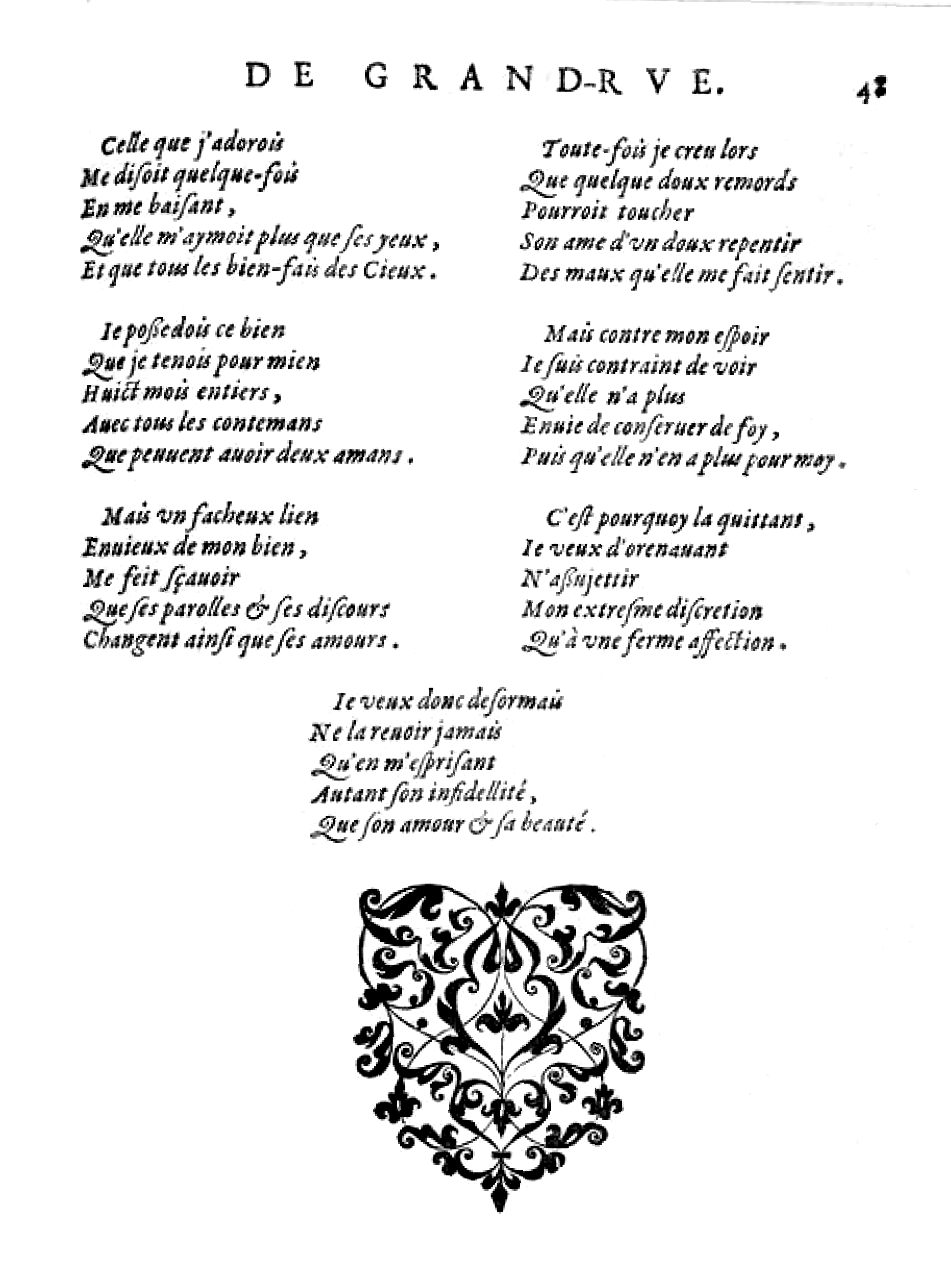 DE GRAND-RVE. 48
Celle que j'adorois
Me diſoit quelque-fois
En me baiſant,
Qu'elle m'aymoit plus que ſes yeux,
Et que tous les bien-fais des Cieux.
Ie poſſedois ce bien
Que je tenois pour mien
Huict mois entiers,
Auec tous les contemans
Que peuuent auoir deux amans.
Mais vn facheux lien
Enuieux de mon bien,
Me feit ſçauoir
Que ſes parolles & ſes diſcours
Changent ainſi que ſes amours.
Toute-fois je creu lors
Que quelque doux remords
Pourroit toucher
Son ame d'vn doux repentir
Des maux qu'elle me fait ſentir.
Mais contre mon eſpoir
Ie ſuis contraint de voir
Qu'elle n'a plus
Enuie de conſeruer de foy,
Puis qu'elle n'en a plus pour moy.
C'eſt pourquoy la quittant,
Ie veux d'orenauant
N'aſſujettir
Mon extreſme diſcretion
Qu'à vne ferme affection.
Ie veux donc deſormais
Ne la reuoir jamais
Qu'en m'eſpriſant
Autant ſon infidellité,
Que ſon amour & ſa beauté.